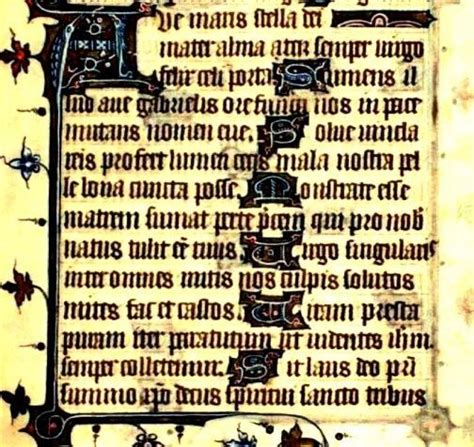 Ave maris stella dei
mater alma atq semper uirgo
felix celi porta Sumens il
lud aue gabrielis ore funda nos in pace
mutans nomen eue. Solue uincla
reis profer lumen cecis mala nostra pel
le bona cuncta posce. Monstrate esse
matrem sumat per te p̄cem qui pro nob
natus tulit ee tuus. Uirgo singularis
inter omnes mitis nos culpis solutos
mites fac et castos. Uitam presta
puram iter para tutum ut uidentes ihm
semper collectemur. Sit laus deo pri
summo xpo decus spiritui sancto tribus